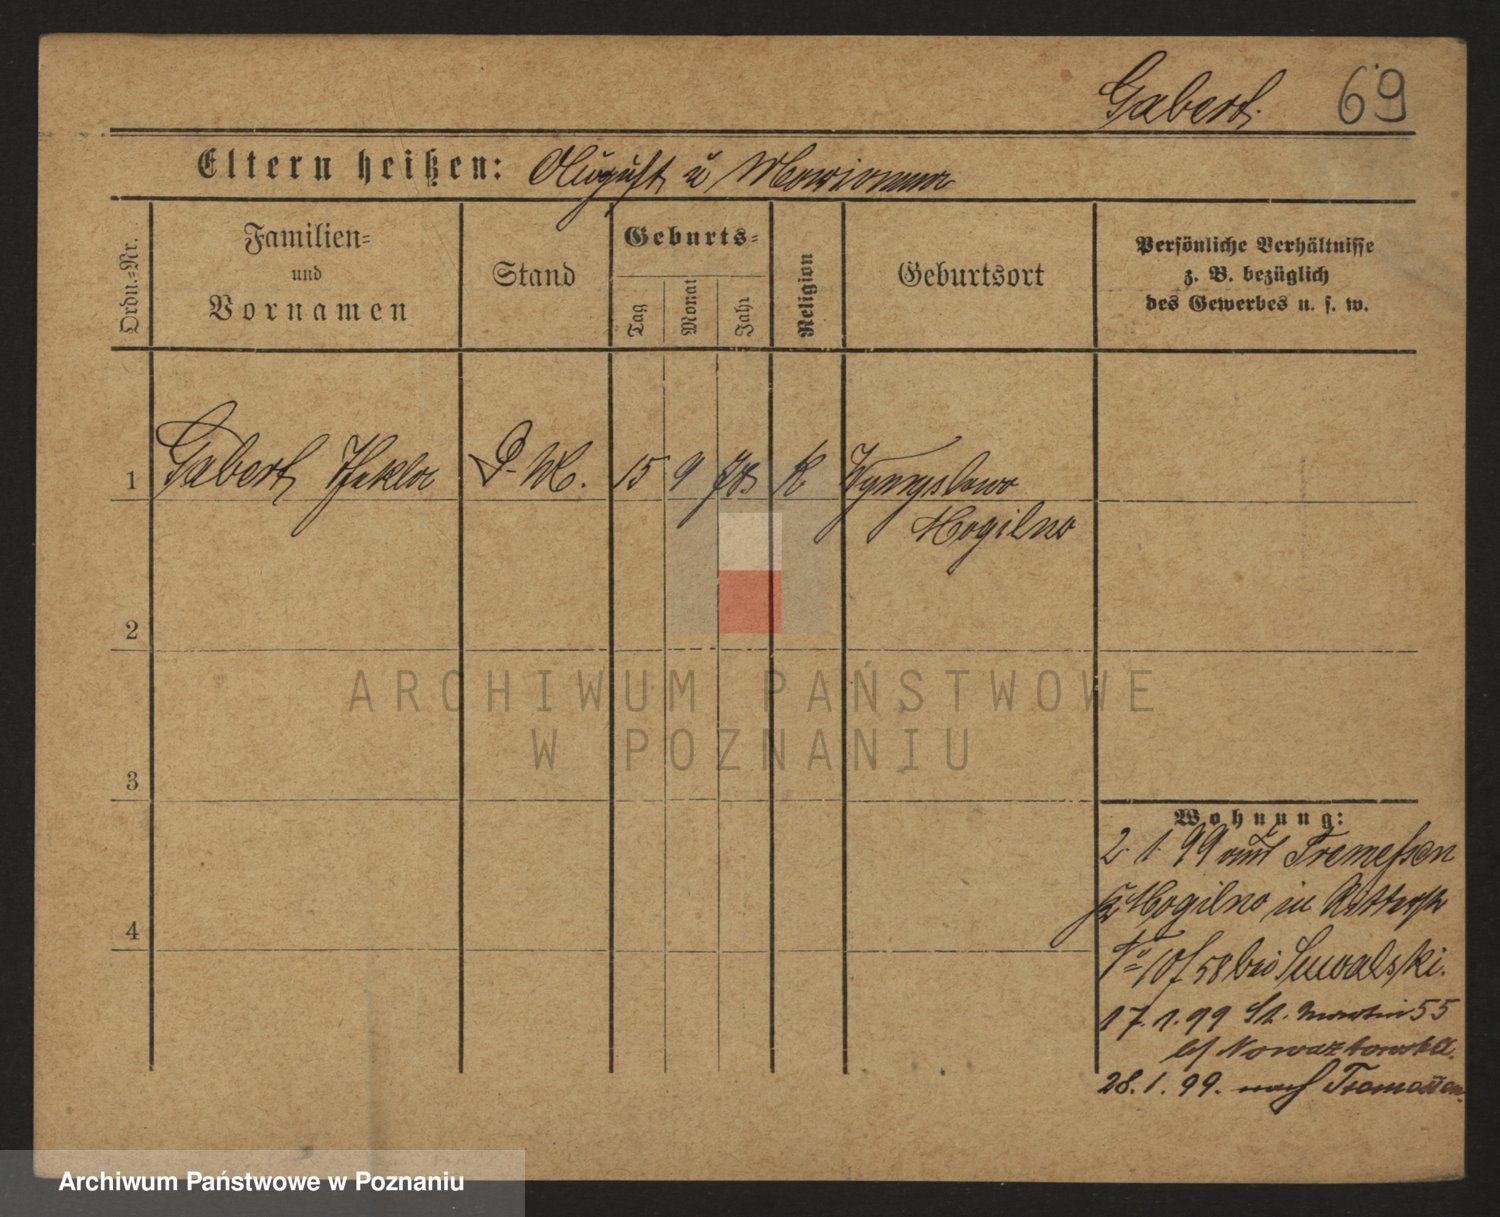 Gabert. 69
Eltern heißen: August u Marianna
Ordn.-Nr.
Familien-
und
Vornamen
Stand
Geburts-
Tag
Monat
Jahr
Religion
Geburtsort
Persönliche Verhältnisse
z. B. bezüglich
des Gewerbes u. s. w.
1 Gabert Thekla D. M. 15 9 78 K Wymyslowo
Mogilno
2
3
4
ARCHIWUM PAŃSTWOWE
W POZNANIU
Wohnung:
2. 1. 99 aus Tremessen
Kr Mogilno in Ritterstr
10/58 bei Suwalski.
17. 1. 99 St. Martin 55
b/
28. 1. 99. nach Tremessen.
Archiwum Państwowe w Poznaniu